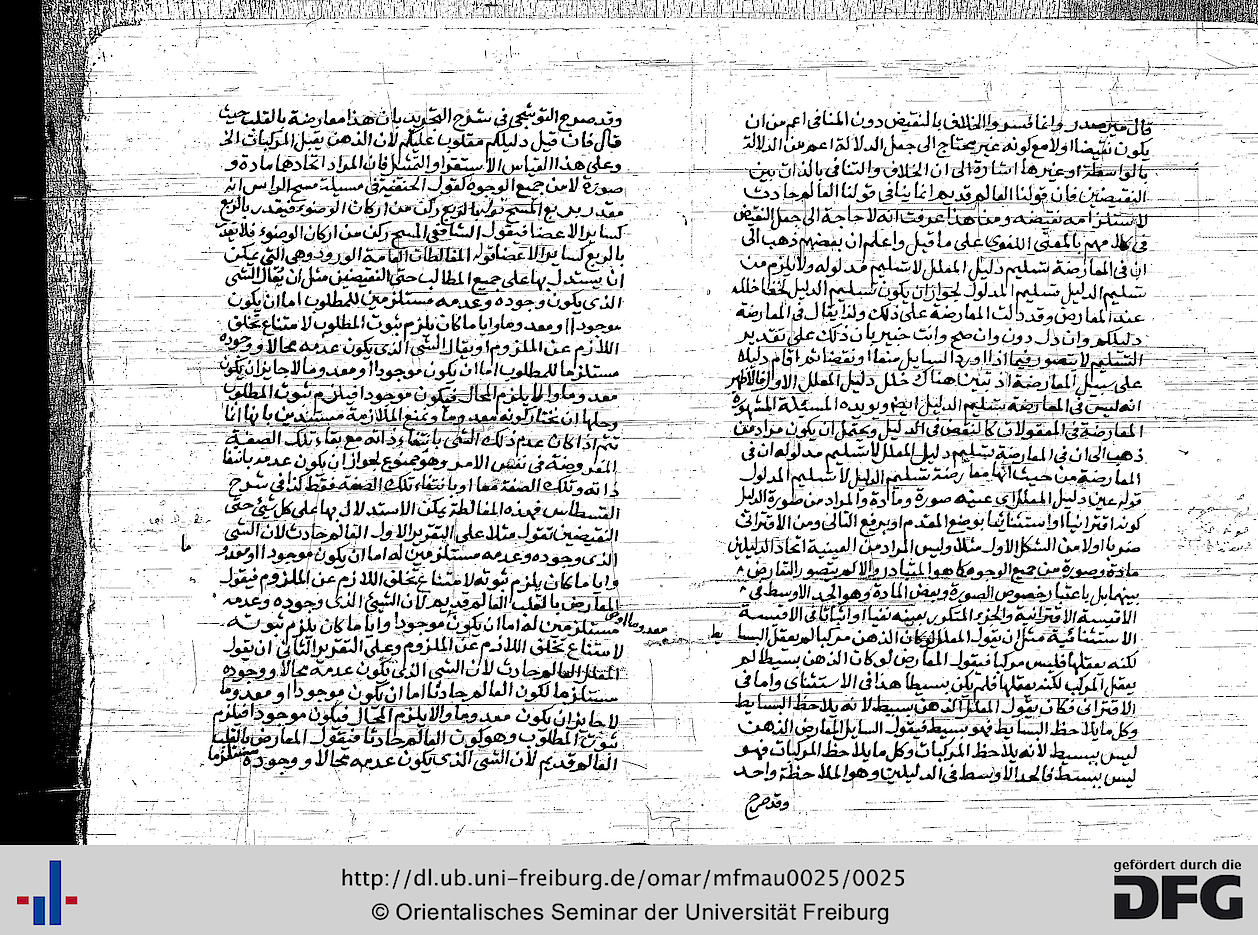 قال مير صدر وانما فسروا الخلاف بالنقيض دون المنافى اعم من ان
يكون نقيضا اولا مع كونه غير محتاج الى جعل الدلالة اعم من الدلالة
بالواسطة او غيرها اشارة الى ان الخلاف والتنافى بالذات بين
النقيضين فان قولنا العالم قديم انما ينافى قولنا العالم حادث
لاستلزامه نقيضه ومن هذا عرفت انه لا حاجة الى حمل النقيض
فى كلامهم بالمعنى اللغوى على ما قيل واعلم ان بعضهم ذهب الى
ان فى المعارضة تسليم دليل المعلل لا تسليم مدلوله ولا يلزم من
تسليم الدليل تسليم المدلول لجواز ان يكون تسليم الدليل لخفا خلله
عند المعارض وقد دلت المعارضة على ذلك ولذا يقال فى المعارضة
دليلكم وان دل دون وان صح وانت خبير بان ذلك على تقدير
التسليم لا يتصور فيما اذا اورد السايل منعا او نقضا ثم اقام دليله
على سبيل المعارضة اذ تبين هناك خلل دليل المعلل الاول فالاظهر
انه ليس فى المعارضة تسليم الدليل ايضا ويويده المسئلة المشهورة
المعارضة فى المعقولات كالنقض فى الدليل ويحتمل ان يكون مراد من
ذهب الى ان فى المعارضة تسليم دليل المعلل لا تسليم مدلوله ان فى
المعارضة من حيث انها معارضة تسليم الدليل لا تسليم المدلول
قوله عين دليل المعلل اى عينه صورة ومادة والمراد من صورة الدليل
كونه اقترانيا او استثنائيا بوضع المقدم او برفع التالى ومن الاقترانى
ضربا اولا من الشكل الاول مثلا وليس المراد من العينية اتحاد الدليلين
مادة وصورة من جميع الوجوه كما هو المتبادر والا لم يتصور التعارض
بينهما بل باعتبار خصوص الصورة وبعض المادة وهو الحد الاوسط فى
الاقيسة الاقترانية والجزء المتكرر بعينه نفيا واثباتا فى الاقيسة
الاستثنائية مثل ان يقول المعلل لو كان الذهن مركبا لم يعقل البسايط
لكنه يعقلها فليس مركبا فيقول المعارض لو كان الذهن بسيطا لم
يعقل المركب لكنه يعقلها فلم يكن بسيطا هذا فى الاستثناى واما فى
الاقترانى فكان يقول المعلل الذهن بسيط لانه يلاحظ البسايط
وكل ما يلاحظ البسايط فهو بسيط فيقول السايل المعارض الذهن
ليس ببسيط لانه يلاحظ المركبات وكل ما يلاحظ المركبات فهو
ليس ببسيط فالحد الاوسط فى الدليلين وهو الملاحظة واحد
وقد صرح
وقد صرح القوشجى فى شرح التجريد بان هذا معارضة بالقلب حيث
قال فان قيل دليلكم مقلوب عليكم لان الذهن يعقل المركبات الخ
وعلى هذا القياس الاستقرا والتمثيل فان المراد اتحادهما مادة و
صورة لا من جميع الوجوه كقول الحنفية فى مسئلة مسح الراس انه
مقدر بربع المسح قولنا لربع ركن من اركان الوضوء فيقدر بالربع
كساير الاعضا فيقول الشافعى المسح ركن من اركان الوضوء فلا يقدر
بالربع كساير الاعضا قوله المغالطات العامة الورود وهى التى يمكن
ان يستدل بها على جميع المطالب حتى النقيضين مثل ان يقال الشى
الذى يكون وجوده وعدمه مستلزمين للمطلوب اما ان يكون
موجودا او معدوما وايا ما كان يلزم ثبوت المطلوب لامتناع تخلف
اللازم عن الملزوم او يقال الشى الذى يكون عدمه محالا ووجوده
مستلزما للمطلوب اما ان يكون موجودا او معدوما لا جايز ان يكون
معدوما والا يلزم المحال فيكون موجودا فيلزم ثبوت المطلوب
وحلها ان نختار كونه معدوما ونمنع الملازمة مستندين بانها انما
تتم اذا كان عدم ذلك الشى بانتفاء ذاته مع بقاء تلك الصفة
المفروضة فى نفس الامر وهو ممنوع لجواز ان يكون عدمه بانتفا
ذاته وتلك الصفة معا او بانتفاء تلك الصفة فقط كذا فى شرح
القسطاس فهذه المغالطة يمكن الاستدلال بها على كل شئ حتى
النقيضين تقول مثلا على التقرير الاول العالم حادث لان الشى
الذى وجوده وعدمه مستلزمين له اما ان يكون موجودا او معدوما
وايا ما كان يلزم ثبوته لامتناع تخلف اللازم عن الملزوم فيقول
المعارض بالقلب العالم قديم لان الشئ الذى وجوده وعدمه
مستلزمين له اما ان يكون موجودا او معدوما وايا ما كان يلزم ثبوته
لامتناع تخلف اللازم عن الملزوم وعلى التقرير الثانى ان يقول
المعلل العالم حادث لان الشى الذى يكون عدمه محالا ووجوده
مستلزما لكون العالم حادثا اما ان يكون موجودا او معدوما
لا جايز ان يكون معدوما والا يلزم المحال فيكون موجودا فيلزم
ثبوت المطلوب وهو كون العالم حادثا فيقول المعارض بالقلب
العالم قديم لان الشى الذى يكون عدمه محالا ووجوده مستلزما
http://dl.ub.uni-freiburg.de/omar/mfmau0025/0025
© Orientalisches Seminar der Universität Freiburg
gefördert durch die
DFG